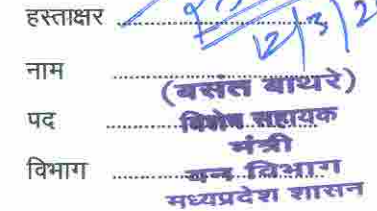 हस्ताक्षर ..........
12/3/2
नाम .......... (बसंत बाथरे)
पद .......... विशेष सहायक
मंत्री
विभाग .......... वन विभाग
मध्यप्रदेश शासन